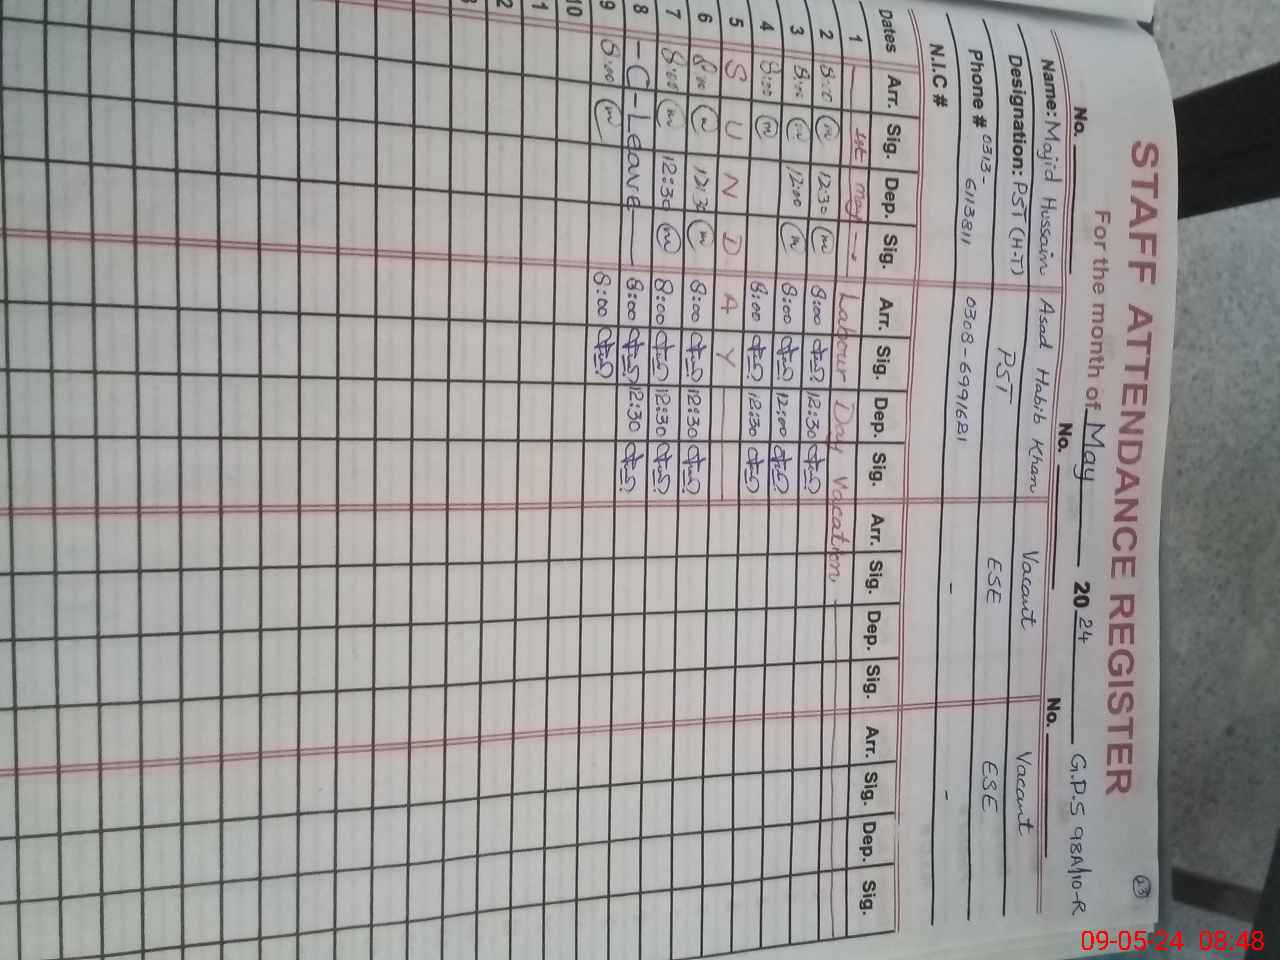 STAFF ATTENDANCE REGISTER
23
For the month of May 2024 G.P.S 98A/10-R
No. No. No.
Name: Majid Hussain Asad Habib Khan Vacant Vacant
Designation: PST (H-T) PST ESE ESE
Phone # 0313-6113811 0308-6991621 - -
N.I.C #
Dates Arr. Sig. Dep. Sig. Arr. Sig. Dep. Sig. Arr. Sig. Dep. Sig. Arr. Sig. Dep. Sig.
1 1st may Labour Day Vacation
2 8:00 m 12:30 m 8:00 12:30
3 8:00 m 12:00 m 8:00 12:00
4 8:00 m 8:00 12:30
5 S U N D A Y
6 8:00 m 12:30 m 8:00 12:30
7 8:00 m 12:30 m 8:00 12:30
8 - C - Leave 8:00 12:30
9 8:00 m 8:00
10
1
2
09-05-24 08:48